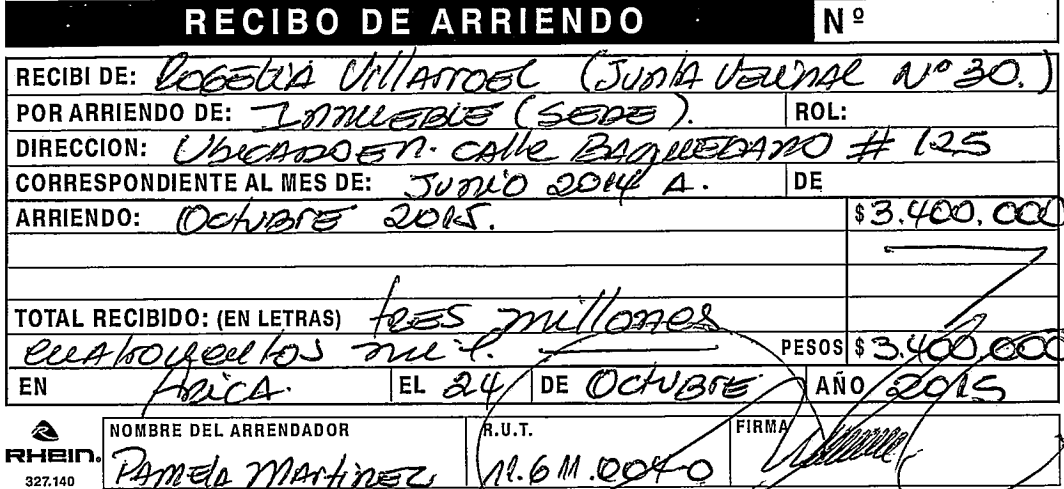 RECIBO DE ARRIENDO Nº
RECIBI DE: ROGELIA VILLARROEL (JUNTA VECINAL Nº 30.)
POR ARRIENDO DE: INMUEBLE (SEDE). ROL:
DIRECCION: UBICADO EN. CALLE BAQUEDANO # 125
CORRESPONDIENTE AL MES DE: JUNIO 2014 A. DE
ARRIENDO: OCTUBRE 2015. $ 3.400.000
TOTAL RECIBIDO: (EN LETRAS) tres millones
cuatrocientos mil. PESOS $ 3.400.000
EN ARICA. EL 24 DE OCTUBRE AÑO 2015
NOMBRE DEL ARRENDADOR R.U.T. FIRMA
RHEIN. PAMELA MARTINEZ
327.140